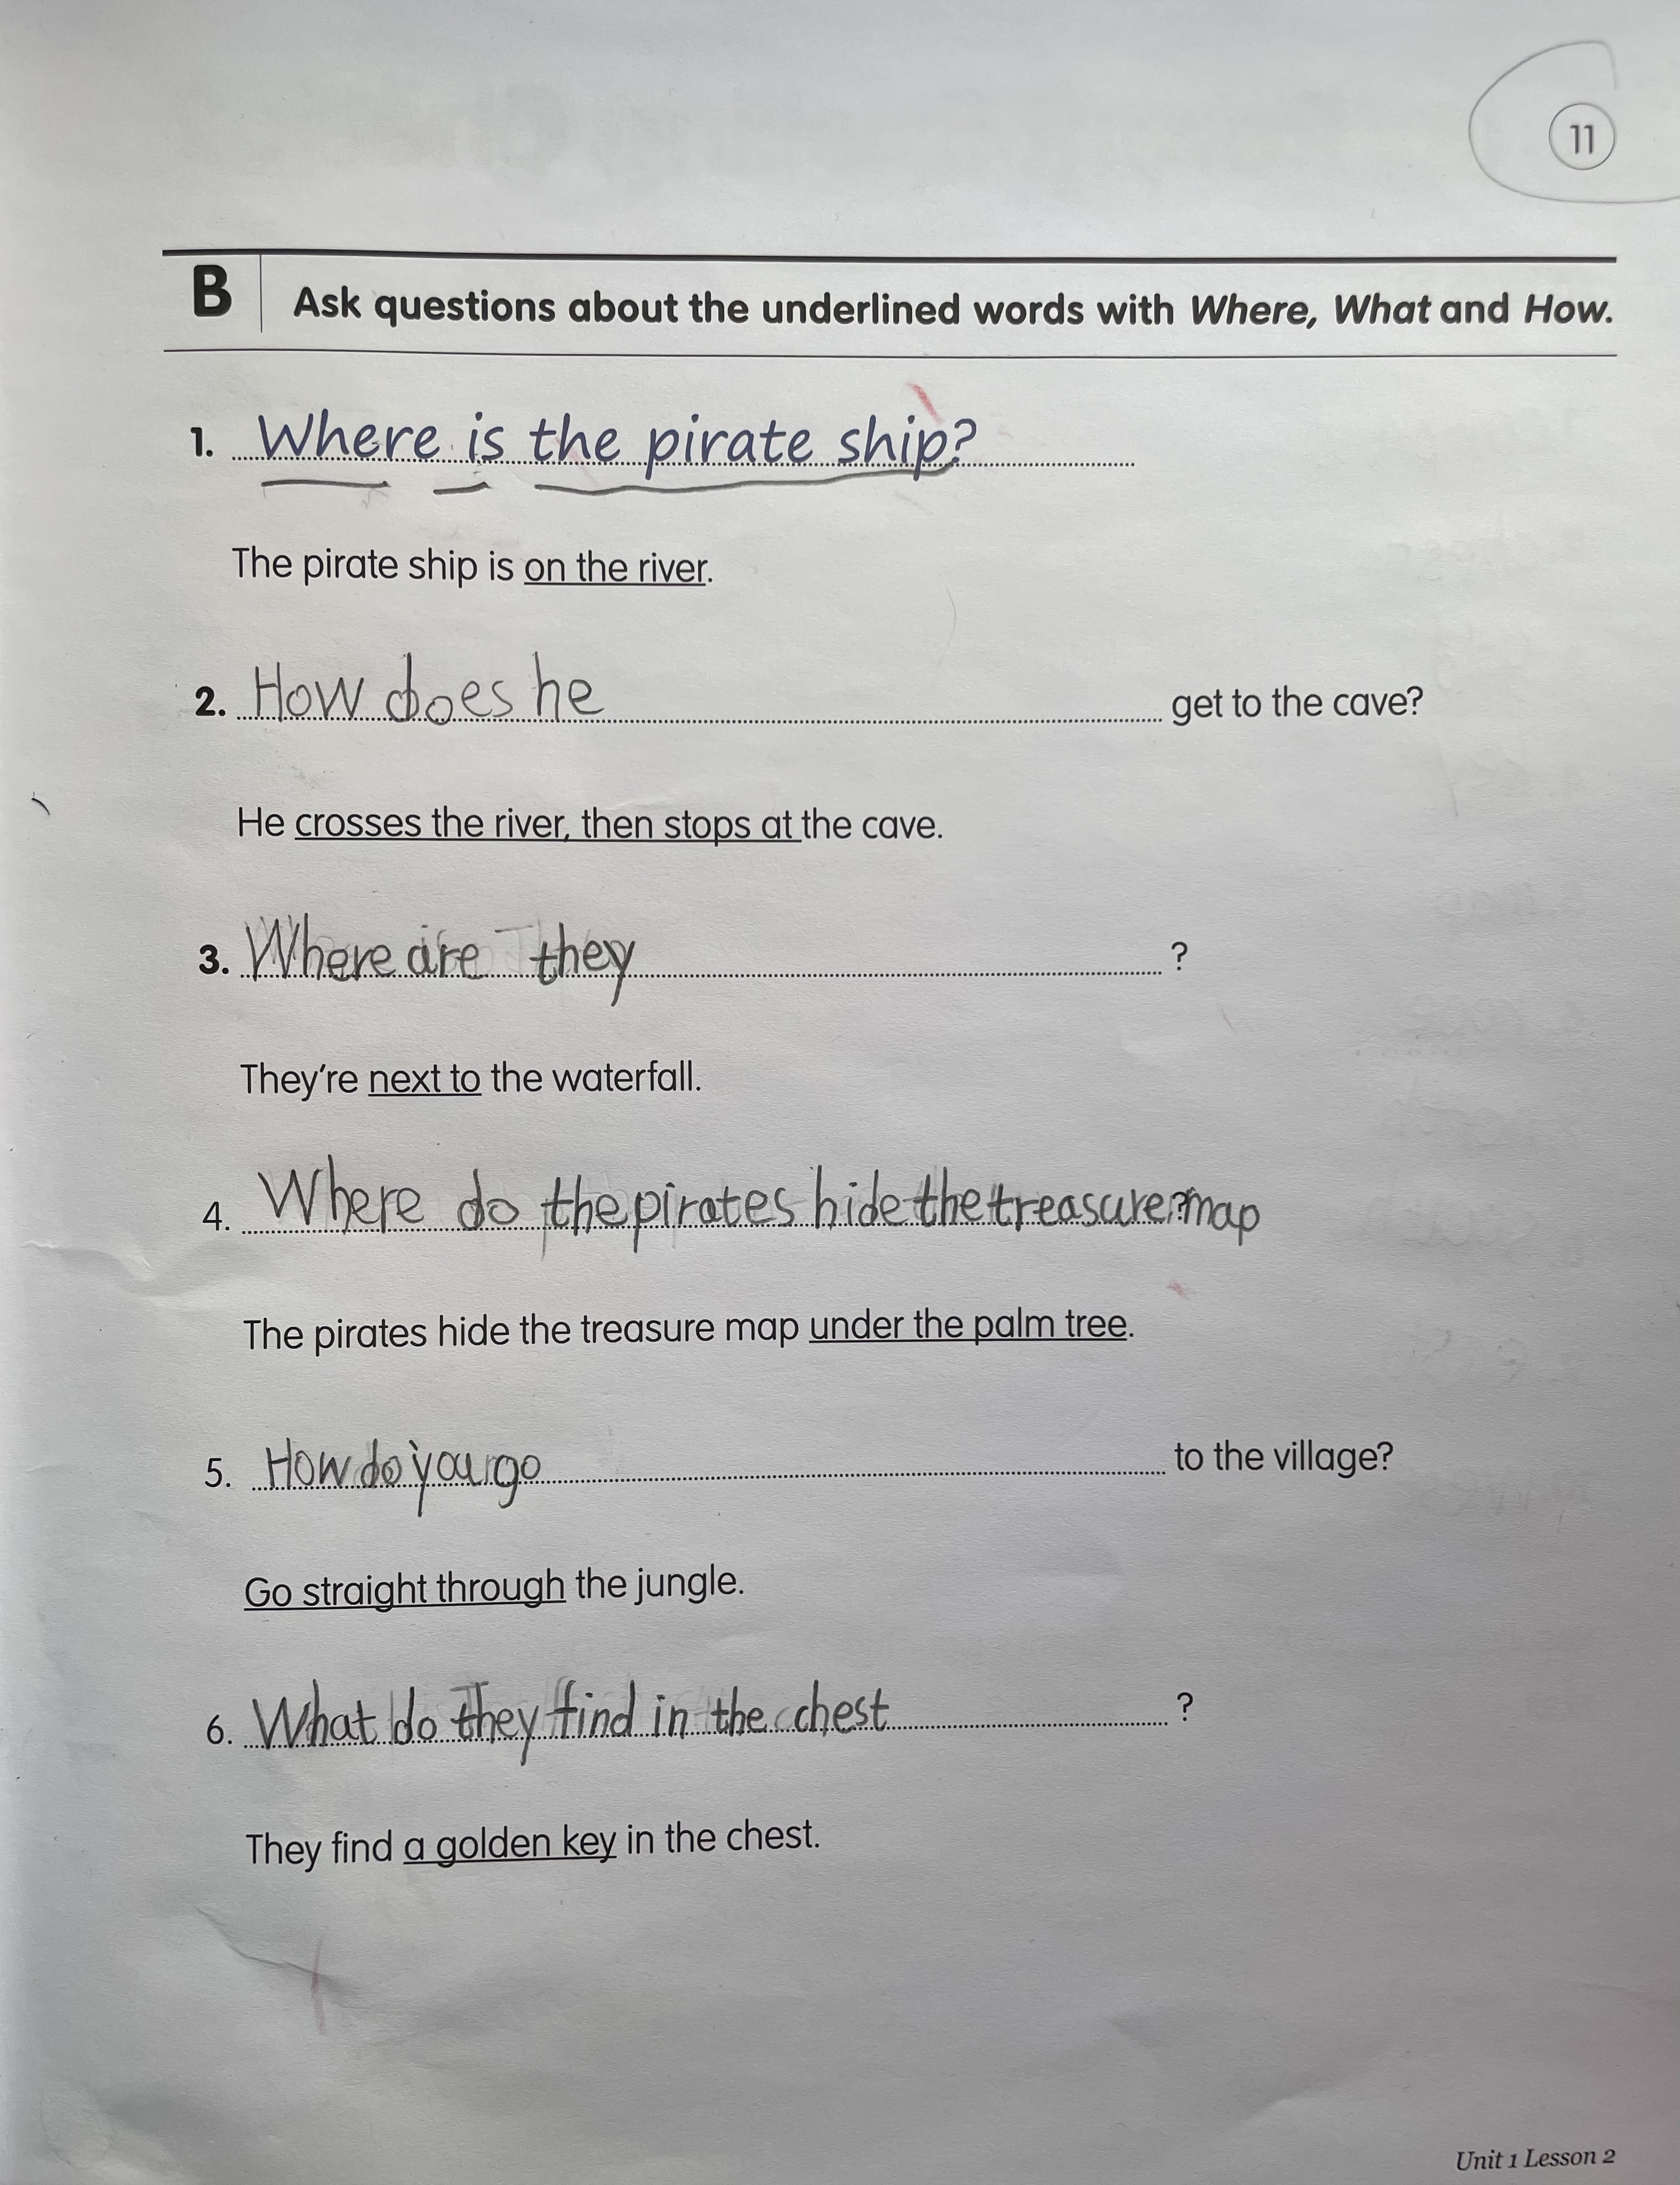 11
B Ask questions about the underlined words with Where, What and How.
1. Where is the pirate ship?
The pirate ship is on the river.
2. How does he get to the cave?
He crosses the river, then stops at the cave.
3. Where are they ?
They're next to the waterfall.
4. Where do the pirates hide the treasure? map
The pirates hide the treasure map under the palm tree.
5. How do you go to the village?
Go straight through the jungle.
6. What do they find in the chest ?
They find a golden key in the chest.
Unit 1 Lesson 2